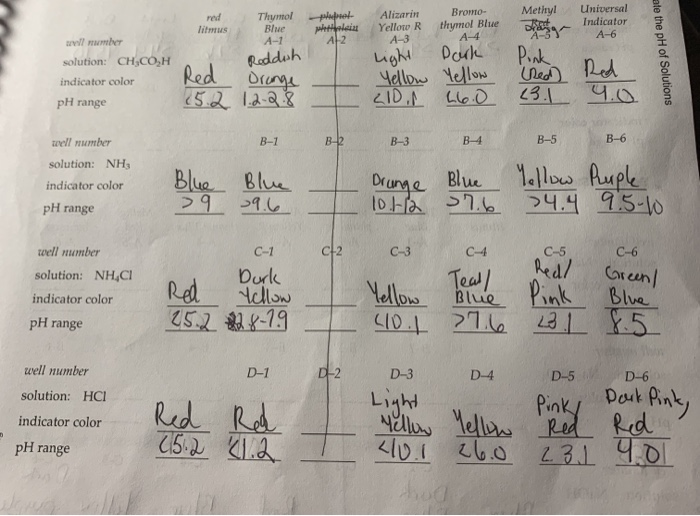 red Thymol phenol- Alizarin Bromo- Methyl Universal
litmus Blue phthalein Yellow R thymol Blue Red Orange Indicator
well number A-1 A-2 A-3 A-4 A-5 A-6
solution: CH₃CO₂H Reddish Light Dark Pink
indicator color Red Orange Yellow Yellow (Red) Red
pH range <5.2 1.2-2.8 <10.1 <6.0 <3.1 4.0
ate the pH of Solutions
well number B-1 B-2 B-3 B-4 B-5 B-6
solution: NH₃
indicator color Blue Blue Orange Blue Yellow Purple
pH range >9 >9.6 10.1-12 >7.6 >4.4 9.5-10
well number C-1 C-2 C-3 C-4 C-5 C-6
solution: NH₄Cl Dark Teal/ Red/ Green/
indicator color Red Yellow Yellow Blue Pink Blue
pH range <5.2 2.8-7.9 <10.1 >7.6 <3.1 8.5
well number D-1 D-2 D-3 D-4 D-5 D-6
solution: HCl Light Pink/ Dark Pink,
indicator color Red Red Yellow Yellow Red Red
pH range <5.2 <1.2 <10.1 <6.0 <3.1 4.0